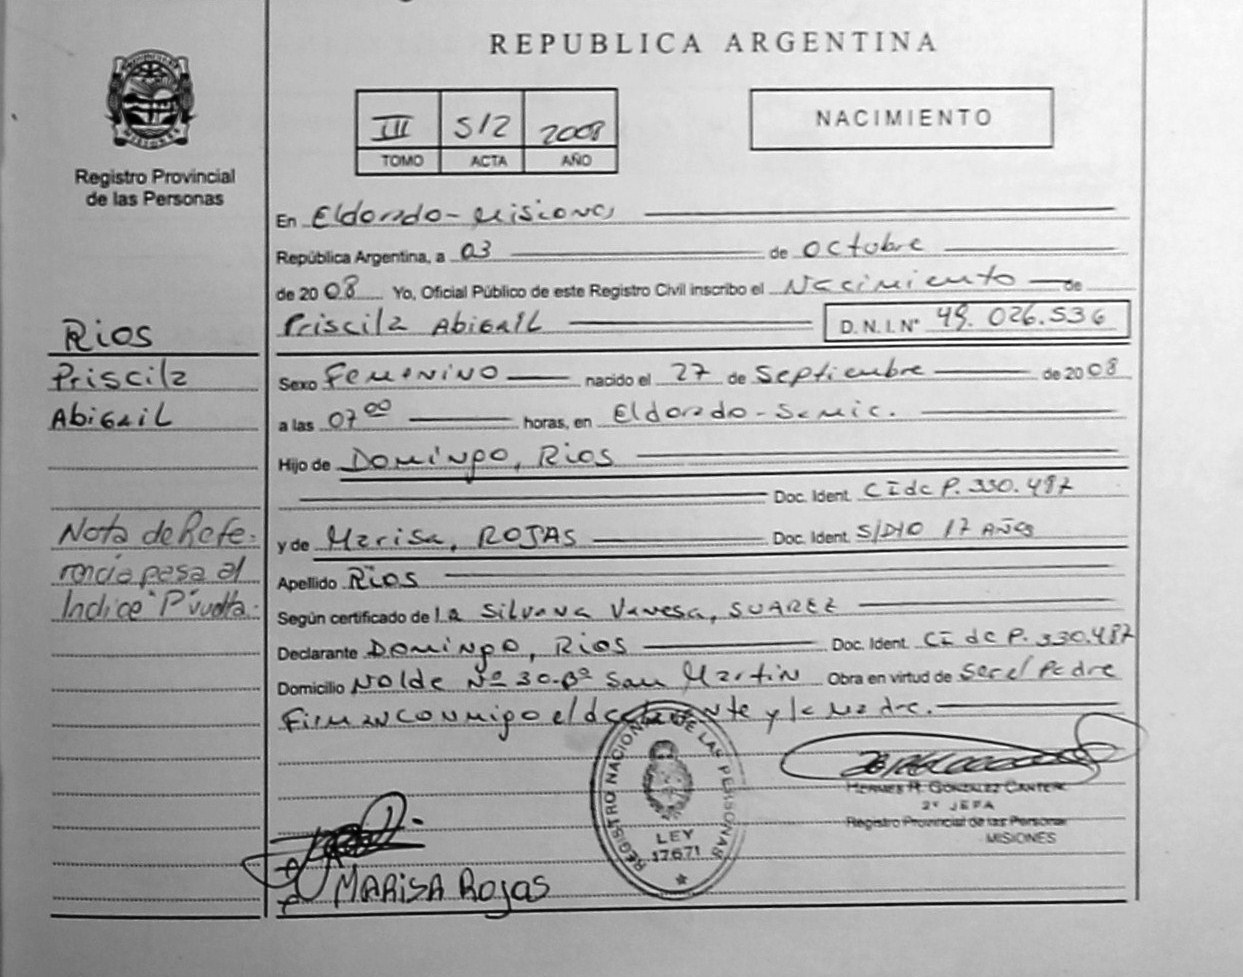 REPUBLICA ARGENTINA
III 512 2008
TOMO ACTA AÑO
NACIMIENTO
Registro Provincial
de las Personas
En Eldorado - Misiones
República Argentina, a 03 de Octubre
de 2008 Yo, Oficial Público de este Registro Civil inscribo el Nacimiento de
Priscila Abigail D.N.I.Nº 49.026.536
Sexo Femenino nacido el 27 de Septiembre de 2008
a las 07 00 horas, en Eldorado - Samic.
Hijo de Domingo, Rios
Doc. Ident. CI de P. 330.487
y de Marisa, ROJAS Doc. Ident. S/DIO 17 AÑOS
Apellido Rios
Según certificado de la Silvana Vanesa, SUAREZ
Declarante Domingo, Rios Doc. Ident. CI de P. 330.487
Domicilio Nolde Nº 30-Bº San Martin Obra en virtud de Ser el Padre
Firman conmigo el declarante y la Madre.
Rios
Priscila
Abigail
Nota de Refe-
rencia pasa al
Indice "P" vuelta.
REGISTRO NACIONAL DE LAS PERSONAS
LEY
17671
2º JEFA
Registro Provincial de las Personas
MISIONES
MARISA Rojas